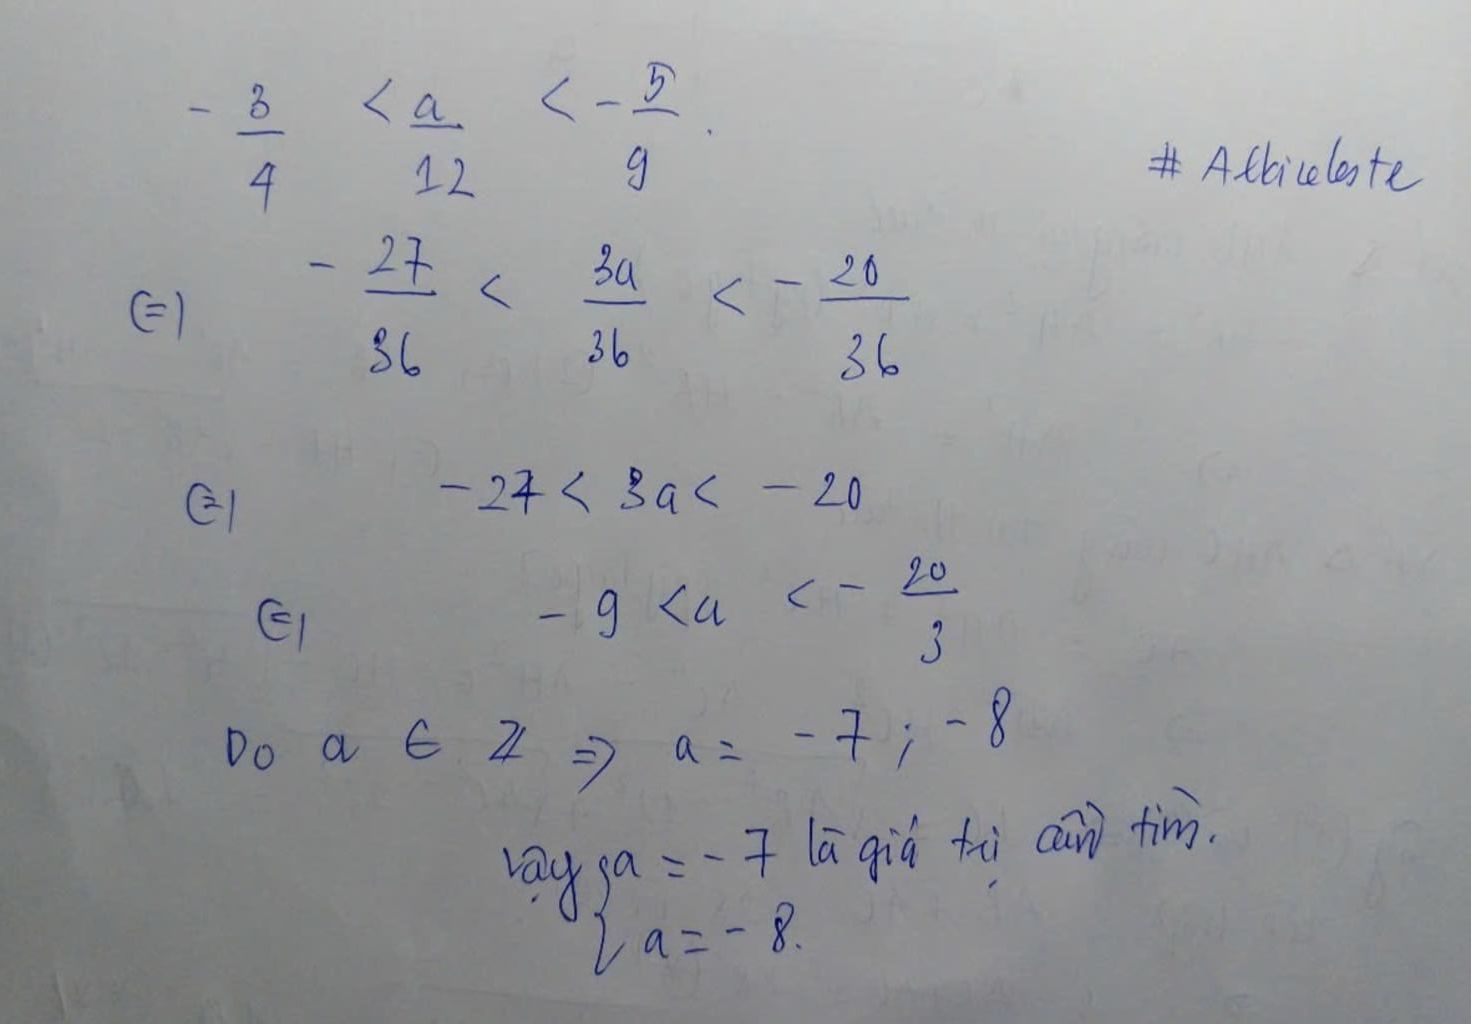 - 3/4 < a/12 < - 5/9.
# Albiceleste
(=) - 27/36 < 3a/36 < - 20/36
(=) - 27 < 3a < - 20
(=) - 9 < a < - 20/3
Do a ∈ Z => a = - 7 ; - 8
Vậy { a = - 7 là giá trị cần tìm.
a = - 8.